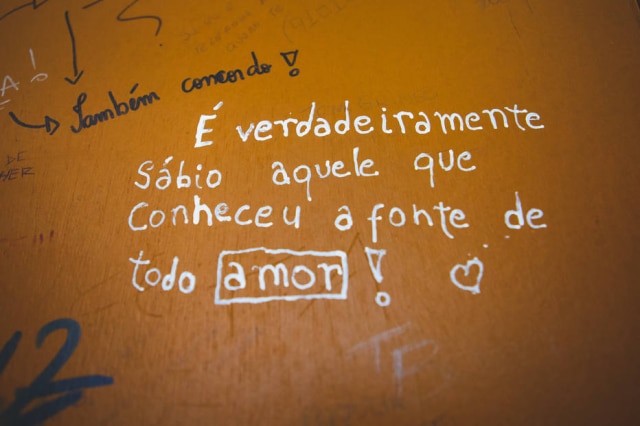 Também concordo!
É verdadeiramente
Sábio aquele que
Conheceu a fonte de
todo amor!